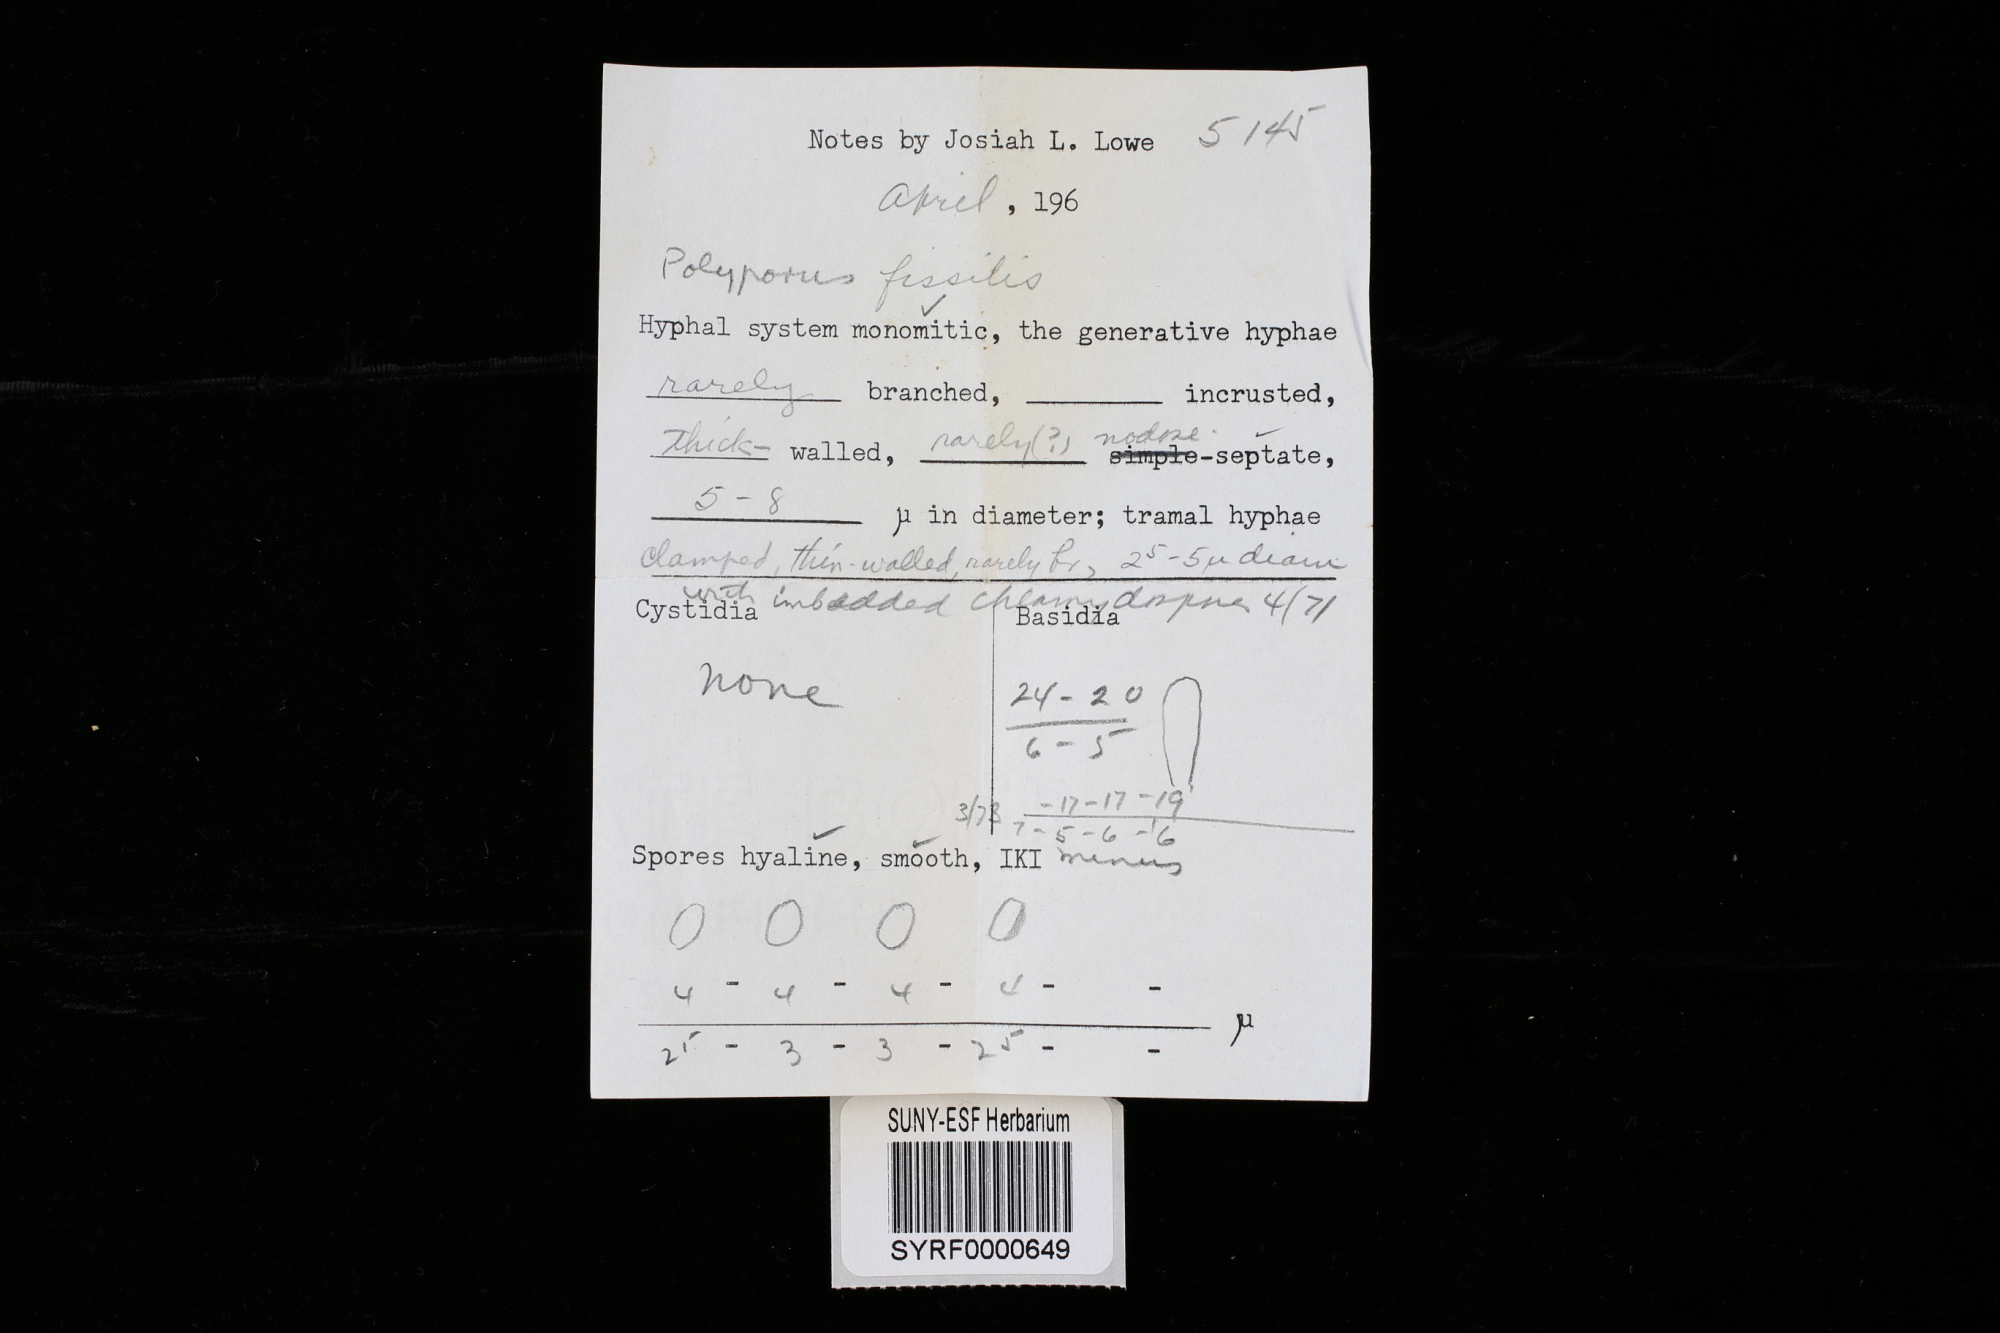 Notes by Josiah L. Lowe 5145
April, 196
Polyporus fissilis
✓
Hyphal system monomitic, the generative hyphae
rarely branched, ______ incrusted,
thick- walled, rarely(?) nodose simple-septate,
5 - 8 µ in diameter; tramal hyphae
clamped, thin-walled, rarely br, 2⁵-5µ diam
with imbedded chlamydospores 4/71
Cystidia Basidia
none
24 - 20
6 - 5
3/73 -17-17-19
7-5-6-6
Spores hyaline, smooth, IKI minus
4 - 4 - 4 - 4 - -
µ
2⁵ - 3 - 3 - 2⁵ - -
SUNY-ESF Herbarium
SYRF0000649